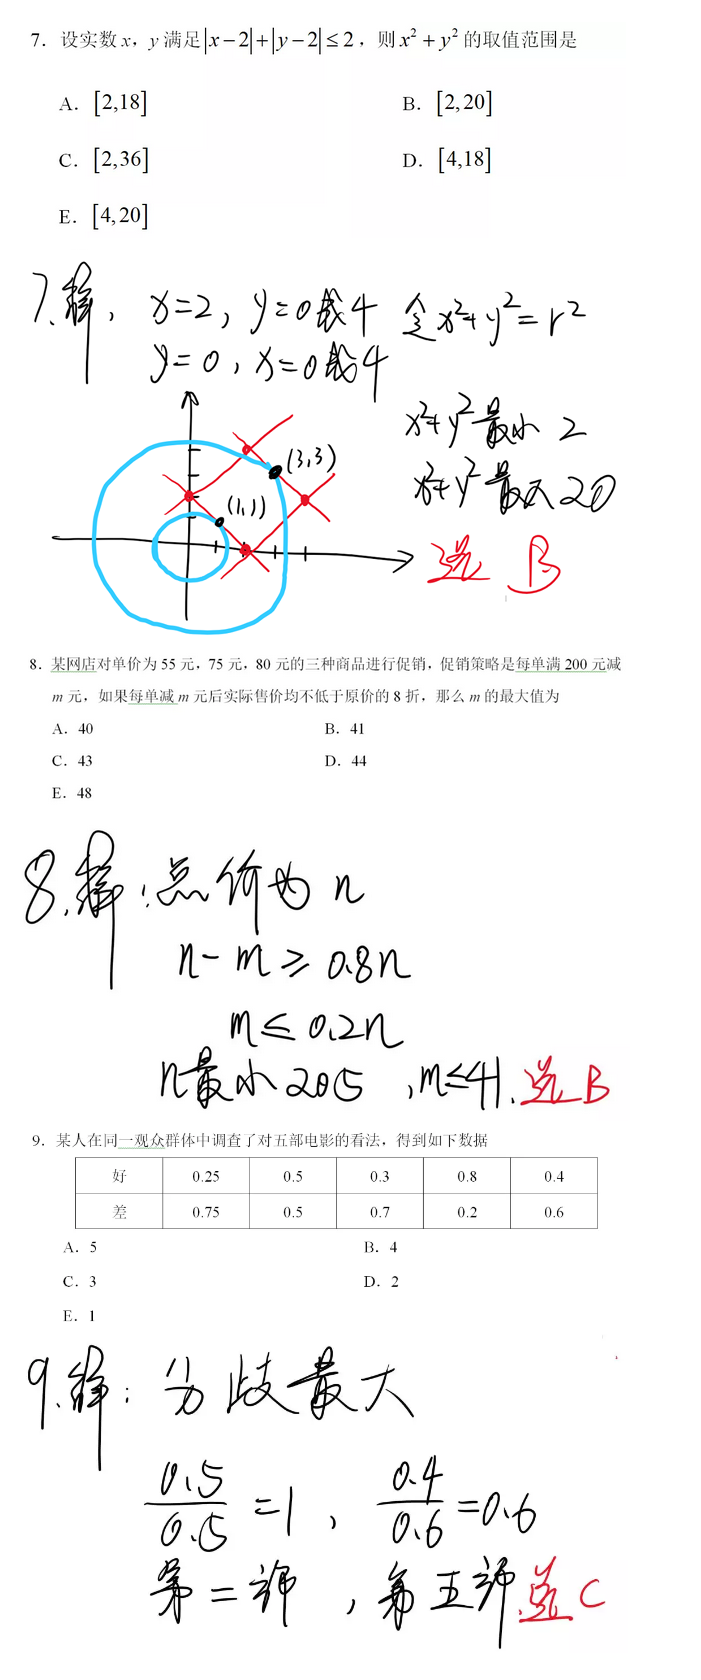 7. 设实数 x, y 满足 |x−2|+|y−2|≤2, 则 x²+y² 的取值范围是
A. [2,18]
B. [2,20]
C. [2,36]
D. [4,18]
E. [4,20]
7.解, x=2, y=0或4 令x²+y²=r²
y=0, x=0或4
x²+y²最小 2
(3,3)
x²+y²最大 20
(1,1)
选 B
8. 某网店对单价为 55 元, 75 元, 80 元的三种商品进行促销, 促销策略是每单满 200 元减
m 元, 如果每单减 m 元后实际售价均不低于原价的 8 折, 那么 m 的最大值为
A. 40
B. 41
C. 43
D. 44
E. 48
8.解:总价为 n
n−m≥0.8n
m≤0.2n
n最小205, m≤41.选B
9. 某人在同一观众群体中调查了对五部电影的看法, 得到如下数据
好 0.25 0.5 0.3 0.8 0.4
差 0.75 0.5 0.7 0.2 0.6
A. 5
B. 4
C. 3
D. 2
E. 1
9.解: 分歧最大
0.5/0.5=1, 0.4/0.6=0.6
第二部, 第五部 选C